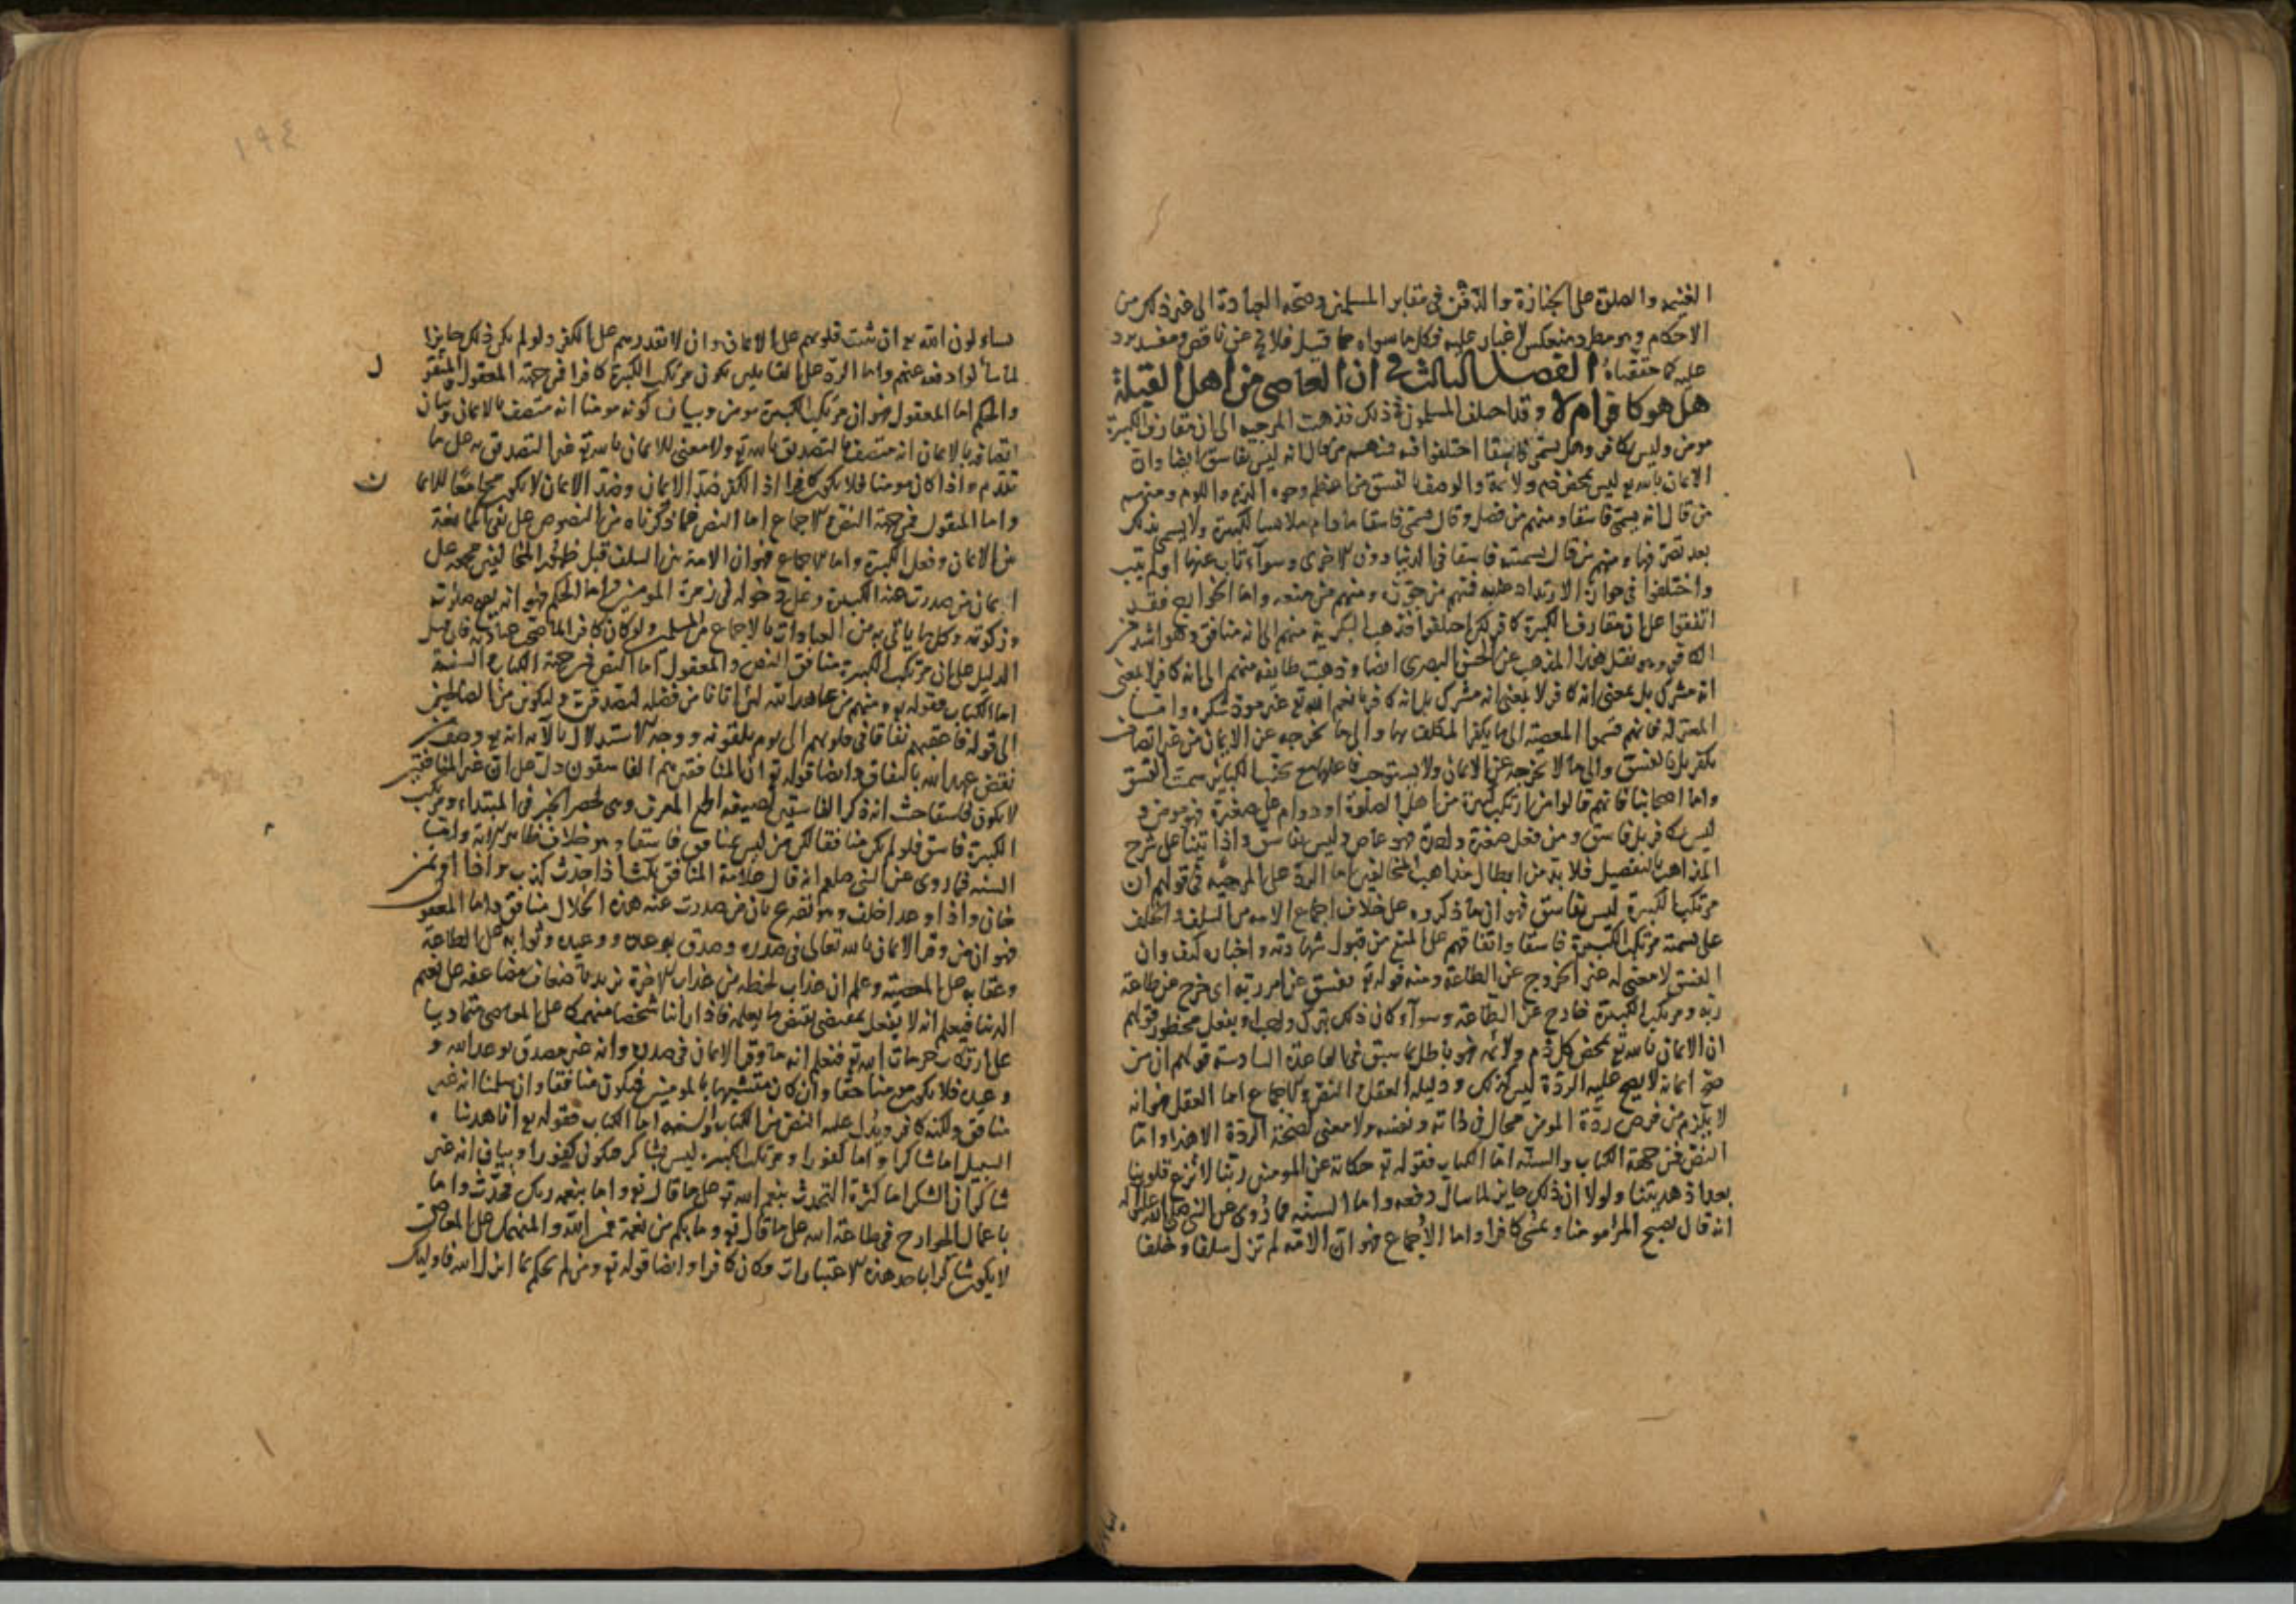 الغنيمه والصلوة على الجنازة والدفن فى مقابر المسلمين وصحه العبادة الى غير ذلك من
الاحكام وهو مطرد منعكس لا غبار عليه وكل ما سواه مما قيل فلا عن ناقض ومفسد يرد
عليه كما حققناه الفصل الثالث فى ان العاصى من اهل القبلة
هل هو كافر ام لا وقد اختلف المسلمون فى ذلك فذهبت المرجيه الى ان مقارف الكبيرة
مومن وليس بكافر وهل يسمى فاسقا اختلفوا فيه فمنهم من قال انه ليس بفاسق ايضا وان
الايمان بالله تع ليس يحض ذم ولائمة والوصف بالفسق من اعظم وجوه الذم واللوم ومنهم
من قال انه يسمى فاسقا ومنهم من فصل وقال يسمى فاسقا ما دام ملابسا للكبيرة ولا يسمى بذلك
بعد تصرفها ومنهم من قال يسميه فاسقا فى الدنيا دون الاخرى وسواء تاب عنها او لم يتب
واختلفوا فى جواز الارتداد عليه فمنهم من جوزه ومنهم من منعه واما الخوارج فقد
اتفقوا على ان مقارف الكبيرة كافر لكن اختلفوا فذهب البكرية منهم الى انه منافق وهو اشد من
الكافر وهو نقل هذا المذهب عن الحسن البصرى ايضا وذهبت طايفه منهم الى انه كافر لا بمعنى
انه مشرك بل بمعنى انه كافر لا بمعنى انه مشرك بل انه كافر بانعم الله تع غير مود شكره واما
المعتزله فانهم قسموا المعصيه الى ما يكفر المكلف بها والى ما تخرجه عن الايمان من غير اتصاف
بكفر بل بالفسق والى ما لا تخرجه عن الايمان ولا يستوجب فاعلها مع تجنب الكبائر سمت الفسق
واما اصحابنا فانهم قالوا من ارتكب كبيرة من اهل الصلوة او دوام على صغيرة فهو مومن و
ليس بكافر بل فاسق ومن فعل صغيرة واحدة فهو عاص وليس بفاسق واذا اتينا على شرح
المذاهب بالتفصيل فلا بد من ابطال مذاهب المخالفين اما الرد على المرجئه فى قولهم ان
مرتكب الكبيرة ليس بفاسق فهو ان ما ذكروه على خلاف اجماع الامه من السلف والخلف
على تسمية مرتكب الكبيرة فاسقا واتفاقهم على المنع من قبول شهادته واخباره كيف وان
الفسق لا معنى له غير الخروج عن الطاعة ومنه قوله تع ففسق عن امر ربه اى خرج عن طاعة
ربه ومرتكب الكبيرة خارج عن الطاعة وسواء كان ذلك بترك واجب او بفعل محظور قولهم
ان الايمان بالله تع يحض كل ذم ولائمه فهو باطل بما سبق فى القاعدة السادسة قولهم ان من
صح ايمانه لا يصح عليه الردة ليس كذلك ودليله العقل والنص والاجماع اما العقل فهو انه
لا يلزم من فرض ردة المومن محال فى ذاته ونفسه ولا معنى لصحة الردة الا هذا واما
النص فمن جهة الكتاب والسنه اما الكتاب فقوله تع حكاية عن المومنين ربنا لا تزغ قلوبنا
بعد اذ هديتنا ولولا ان ذلك جايز لما سال دفعه واما السنه فما روى عن النبى صلى الله عليه
انه قال يصبح المرا مومنا ويمسى كافرا واما الاجماع فهو ان الامة لم تزل سلفا وخلفا
يساءلون الله تع ان يثبت قلوبهم على الايمان وان لا يقدرهم على الكفر ولو لم يكن ذلك جايزا
لما سألوا دفعه عنهم واما الرد على القايلين بكون مرتكب الكبيرة كافرا فمن جهة المعقول والمنقول
والحكم اما المعقول فهو ان مرتكب الكبيرة مومن وبيان كونه مومنا انه متصف بالايمان وبيان
اتصافه بالايمان انه متصف بالتصديق بالله تع ولا معنى للايمان بالله تع غير التصديق به على ما
تقدم واذا كان مومنا فلا يكون كافرا اذ الكفر ضد الايمان وضد الايمان لا يكون مجامعا للايمان
واما المنقول فمن جهة النص والاجماع اما النص فما ذكرناه من النصوص على نفى المنافعة
بين الايمان وفعل الكبيرة واما الاجماع فهو ان الامة من السلف قبل ظهور المخالفين مجمعه على
ايمان من صدرت عنه الكبيرة وعلى دخوله فى زمرة المومنين واما الحكم فهو انه يصح صلوته
وزكوته وكل ما ياتى به من العبادات بالاجماع من المسلمين ولو كان كافرا لما صحت عبادته فان قيل
الدليل على ان مرتكب الكبيرة منافق النص والمعقول اما النص فمن جهة الكتاب والسنة
اما الكتاب فقوله تع ومنهم من عاهد الله لئن اتانا من فضله لنصدقن ولنكونن من الصالحين
الى قوله فاعقبهم نفاقا فى قلوبهم الى يوم يلقونه ووجه الاستدلال بالآيه انه تع وصف من
نقض عهد الله بالنفاق وايضا قوله تع ان المنافقين هم الفاسقون دل على ان غير المنافقين
لا يكون فاسقا حيث انه ذكر الفاسقين بصيغه الجمع المعرف وهى لحصر الخبر فى المبتداء ومرتكب
الكبيرة فاسق فلو لم يكن منافقا لكان من ليس بمنافق فاسقا وهو خلاف ظاهر الاية واما
السنه فما روى عن النبى صلعم انه قال علامة المنافق ثلث اذا حدث كذب واذا اوتمن
خان واذا وعد اخلف وهو تصريح بان من صدرت عنه هذه الخلال منافق واما المعقول
فهو ان من وقر الايمان بالله تعالى فى صدره وصدق بوعده ووعيده وثوابه على الطاعة
وعقابه على المعصيته وعلم ان عذاب لحظه من عذاب الاخرة يزيد باضعاف مضاعفه على نعيم
الدنيا فيعلم انه لا يفعل بمقتضى نقيض ما يعلمه فاذا راينا شخصا منهمكا على المعاصى متماديا
على ارتكاب حرمات الله تع فنعلم انه ما وقر الايمان فى صدره وانه غير مصدق بوعد الله و
وعيده فلا يكون مومنا حقا وان كان متشبها بالمومنين فيكون منافقا وان سلمنا انه غير
منافق ولكنه كافر ويدل عليه النص من الكتاب والسنه اما الكتاب فقوله تع انا هديناه
السبيل اما شاكرا واما كفورا ومرتكب الكبيره ليس بشاكر فيكون كفورا وبيان انه غير
شاكر ان الشكر اما كثرة التحدث بنعم الله تع على ما قال تع واما بنعمه ربك فحدث واما
باعمال الجوارح فى طاعة الله على ما قال تع وما بكم من نعمة فمن الله والمنهمك على المعاصى
لا يكون شاكرا باحد هذه الاعتبارات فكان كافرا وايضا قوله تع ومن لم يحكم بما انزل الله فاوليك